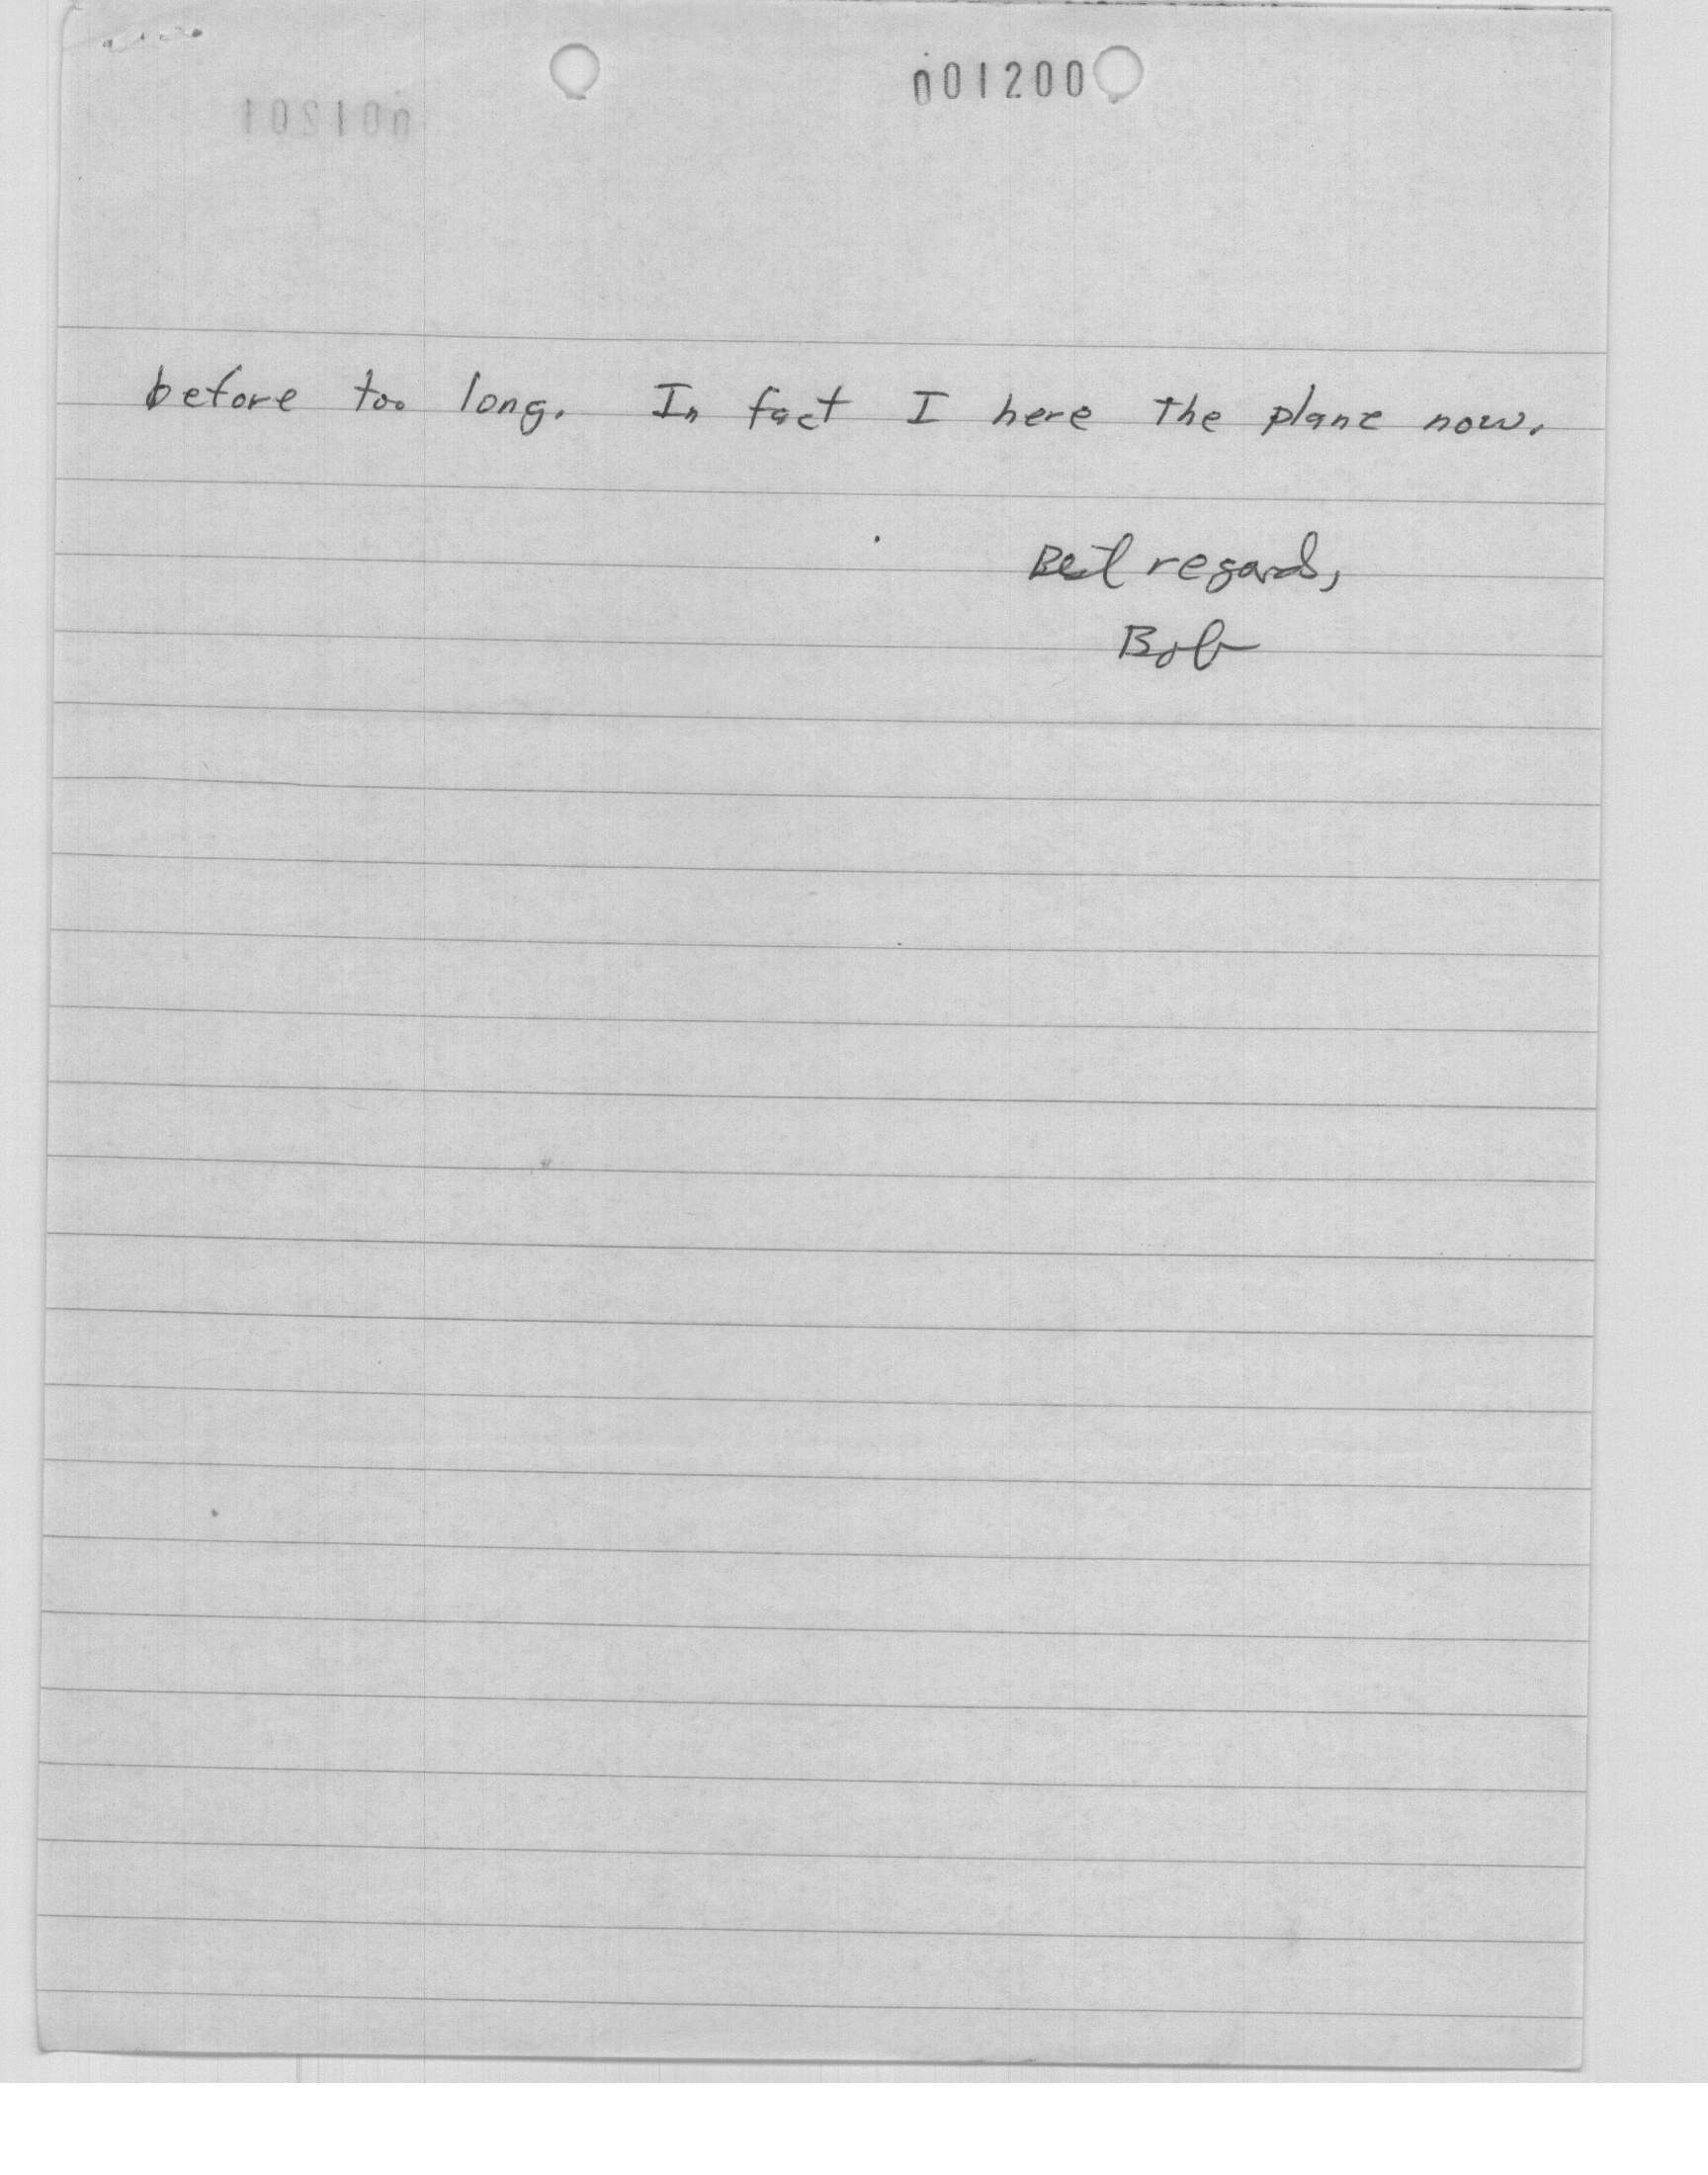 001200
001201
before too long. In fact I here the plane now.
Best regards,
Bob